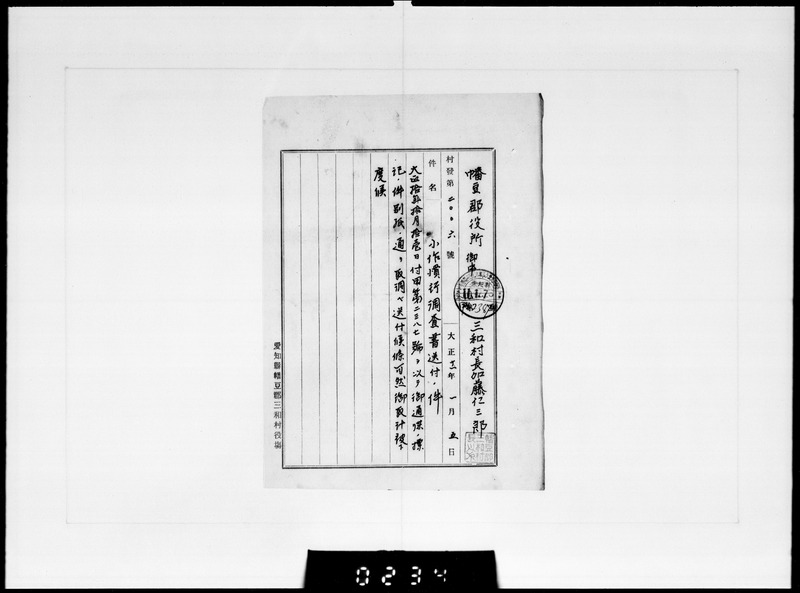 幡豆郡役所 御中
三和村長加藤仁三郎
村發第二〇〇六號
大正十一年 一月 五日
件名 小作慣行調査書送付ノ件
大正拾年拾月拾壱日付田第二三八七號ヲ以テ御通牒ノ標
記ノ件別紙ノ通リ取調ヘ送付候條可然御取計被
度候
愛知縣幡豆郡三和村役場
0234